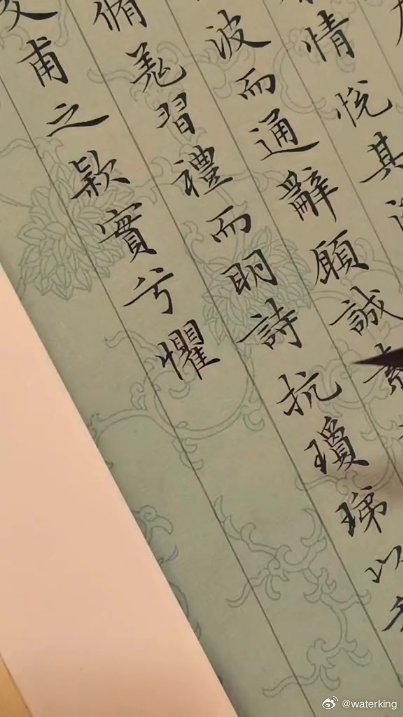 情悅其
波而通辭願誠素
脩羗習禮而明詩抗瓊珶以
交甫之款實兮懼
@waterking